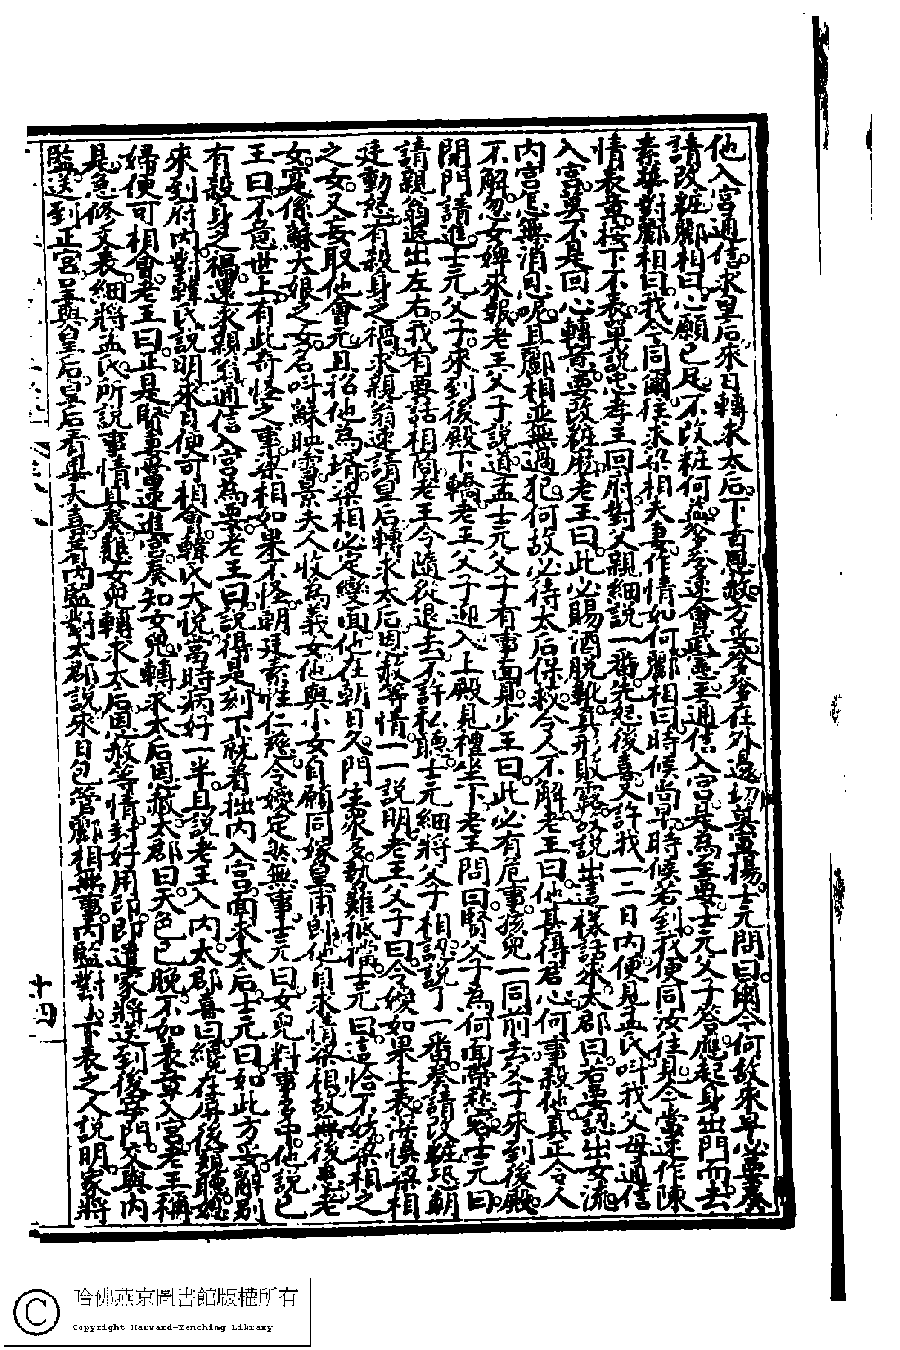 他入宮通信求皇后來日轉求太后下旨恩赦方妥爹爹在外邊切莫宣揚士元問曰爾今何故來早必要奏
請改粧酈相曰心願已足不改粧何為爹爹速會武憲王通信入宮是為至要士元父子答應起身出門而去
素華對酈相曰我今同爾往求梁相夫妻作情如何酈相曰時候尚早時候若到我便同汝往見今當速作陳
情表章按下不表單說忠孝王回府對父親細說一番先怒後喜又許我一二日內便見孟氏叫我父母通信
入宮莫不是回心轉意要改粧麼老王曰此必賜酒脫靴真形敗露故說出這樣話來太郡曰若要認出女流
內宮怎無消息呢且酈相並無過犯何故必待太后保救令人不解老王曰他甚得君心何事殺他真正令人
不解忽女婢來報老王父子說道孟士元父子有事面見少王曰此必有危事孩兒一同前去父子來到後殿
開門請進士元父子來到後殿下轎老王父子迎入上殿見禮坐下老王問曰賢父子為何面帶愁容士元曰
請親翁退出左右我有要話相商老王令隨從退去不許私聽士元細將父子相認說了一番奏請改粧恐朝
廷動怒有殺身之禍求親翁速請皇后轉求太后恩赦等情一一說明老王父子曰令嬡如果上表洪慎梁相
之女又妄取他會元且招他為壻梁相必定變面他在朝日久門生眾多孰難抵擋士元曰這恰不妨梁相之
女實係蘇大娘之女名叫蘇映雪景夫人收為義女他與小女自願同嫁皇甫郎他自求情梁相故無後患老
王曰不意世上有此奇怪之事梁相如果不怪朝廷素性仁慈令嬡定然無事士元曰女兒料事多中他說已
有殺身之禍還求親翁通信入宮為要老王曰說得是刻下就着拙內入宮面求太后士元曰如此方妥辭別
來到府內對韓氏說明求日便可相會韓氏大悅當時病好一半且說老王入內太郡喜曰纔在屏後親聽媳
婦便可相會老王曰正是賢妻當速進宮奏知女兒轉求太后恩赦太郡曰天色已晚不如表章入宮老王稱
是急修文表細將孟氏所說事情具奏懇女兒轉求太后恩赦等情封好用印即遣家將送到後宰門交與內
監送到正宮呈與皇后皇后看畢大喜着內監對太郡說來日包管酈相無事內監對上下表之人說明家將
十四
哈佛燕京圖書館版權所有
Copyright Harvard-Yenching Library